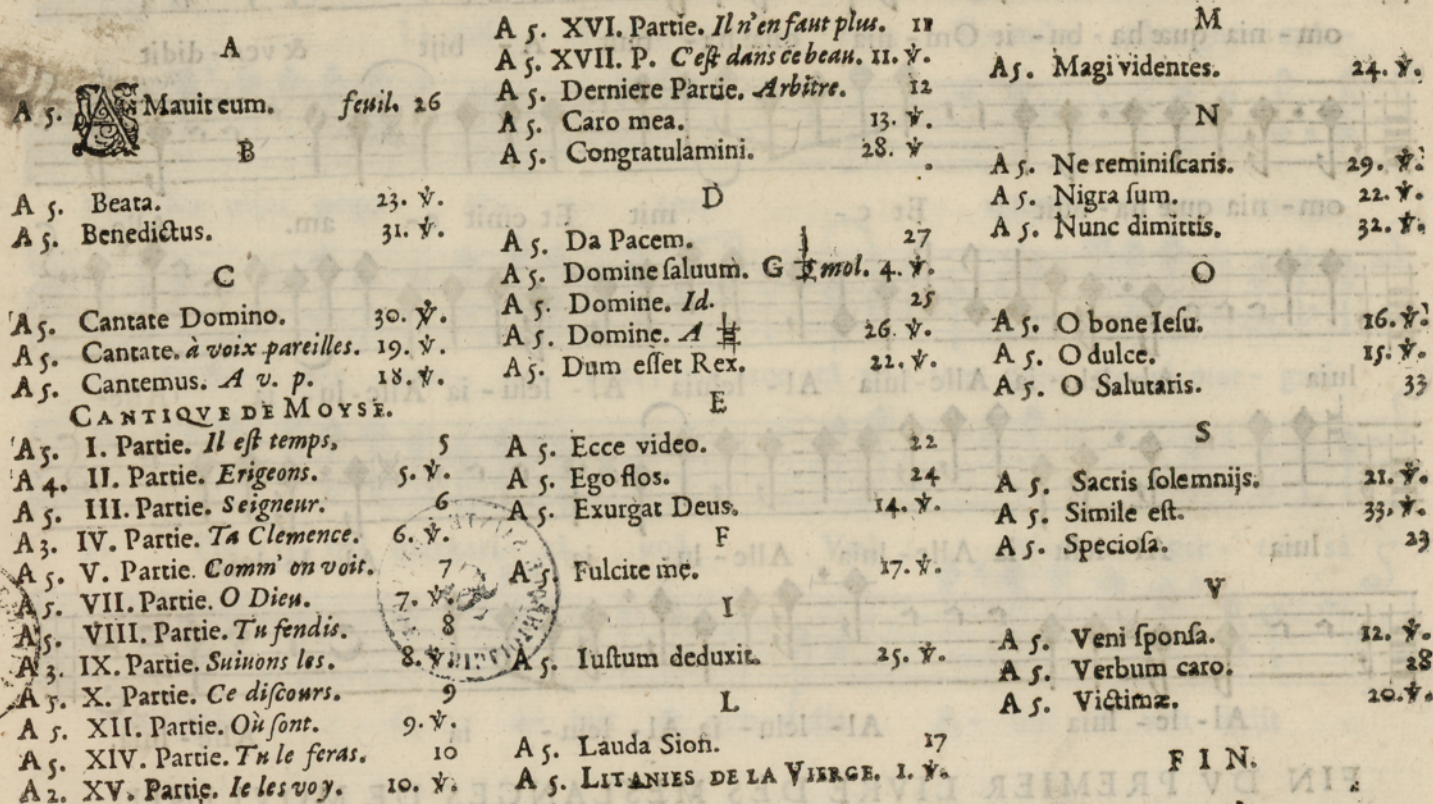 A
A 5. AMauit eum. feuil. 26
B
A 5. Beata. 23. ℣.
A 5. Benedictus. 31. ℣.
C
A 5. Cantate Domino. 30. ℣.
A 5. Cantate. à voix pareilles. 19. ℣.
A 5. Cantemus. A v. p. 18. ℣.
CANTIQVE DE MOYSE.
A 5. I. Partie. Il eſt temps, 5
A 4. II. Partie. Erigeons. 5. ℣.
A 5. III. Partie. Seigneur. 6
A 3. IV. Partie. Ta Clemence. 6. ℣.
A 5. V. Partie. Comm' on voit. 7
A 5. VII. Partie. O Dieu. 7. ℣.
A 5. VIII. Partie. Tu fendis. 8
A 3. IX. Partie. Suiuons les. 8. ℣.
A 5. X. Partie. Ce diſcours. 9
A 5. XII. Partie. Où ſont. 9. ℣.
A 5. XIV. Partie. Tu le feras. 10
A 2. XV. Partie. Ie les voy. 10. ℣.
A 5. XVI. Partie. Il n'en faut plus. 11
A 5. XVII. P. C'eſt dans ce beau. 11. ℣.
A 5. Derniere Partie. Arbitre. 12
A 5. Caro mea. 13. ℣.
A 5. Congratulamini. 28. ℣.
D
A 5. Da Pacem. 27
A 5. Domine ſaluum. G mol. 4. ℣.
A 5. Domine. Id. 25
A 5. Domine. A 26. ℣.
A 5. Dum eſſet Rex. 22. ℣.
E
A 5. Ecce video. 22
A 5. Ego flos. 24
A 5. Exurgat Deus. 14. ℣.
F
A 5. Fulcite me. 17. ℣.
I
A 5. Iuſtum deduxit. 25. ℣.
L
A 5. Lauda Sion. 17
A 5. LITANIES DE LA VIERGE. 1. ℣.
M
A 5. Magi videntes. 24. ℣.
N
A 5. Ne reminiſcaris. 29. ℣.
A 5. Nigra ſum. 22. ℣.
A 5. Nunc dimittis. 32. ℣.
O
A 5. O bone Ieſu. 16. ℣.
A 5. O dulce. 15. ℣.
A 5. O Salutaris. 33
S
A 5. Sacris ſolemnijs. 21. ℣.
A 5. Simile eſt. 33. ℣.
A 5. Specioſa. 23
V
A 5. Veni ſponſa. 12. ℣.
A 5. Verbum caro. 28
A 5. Victimæ. 20. ℣.
FIN.